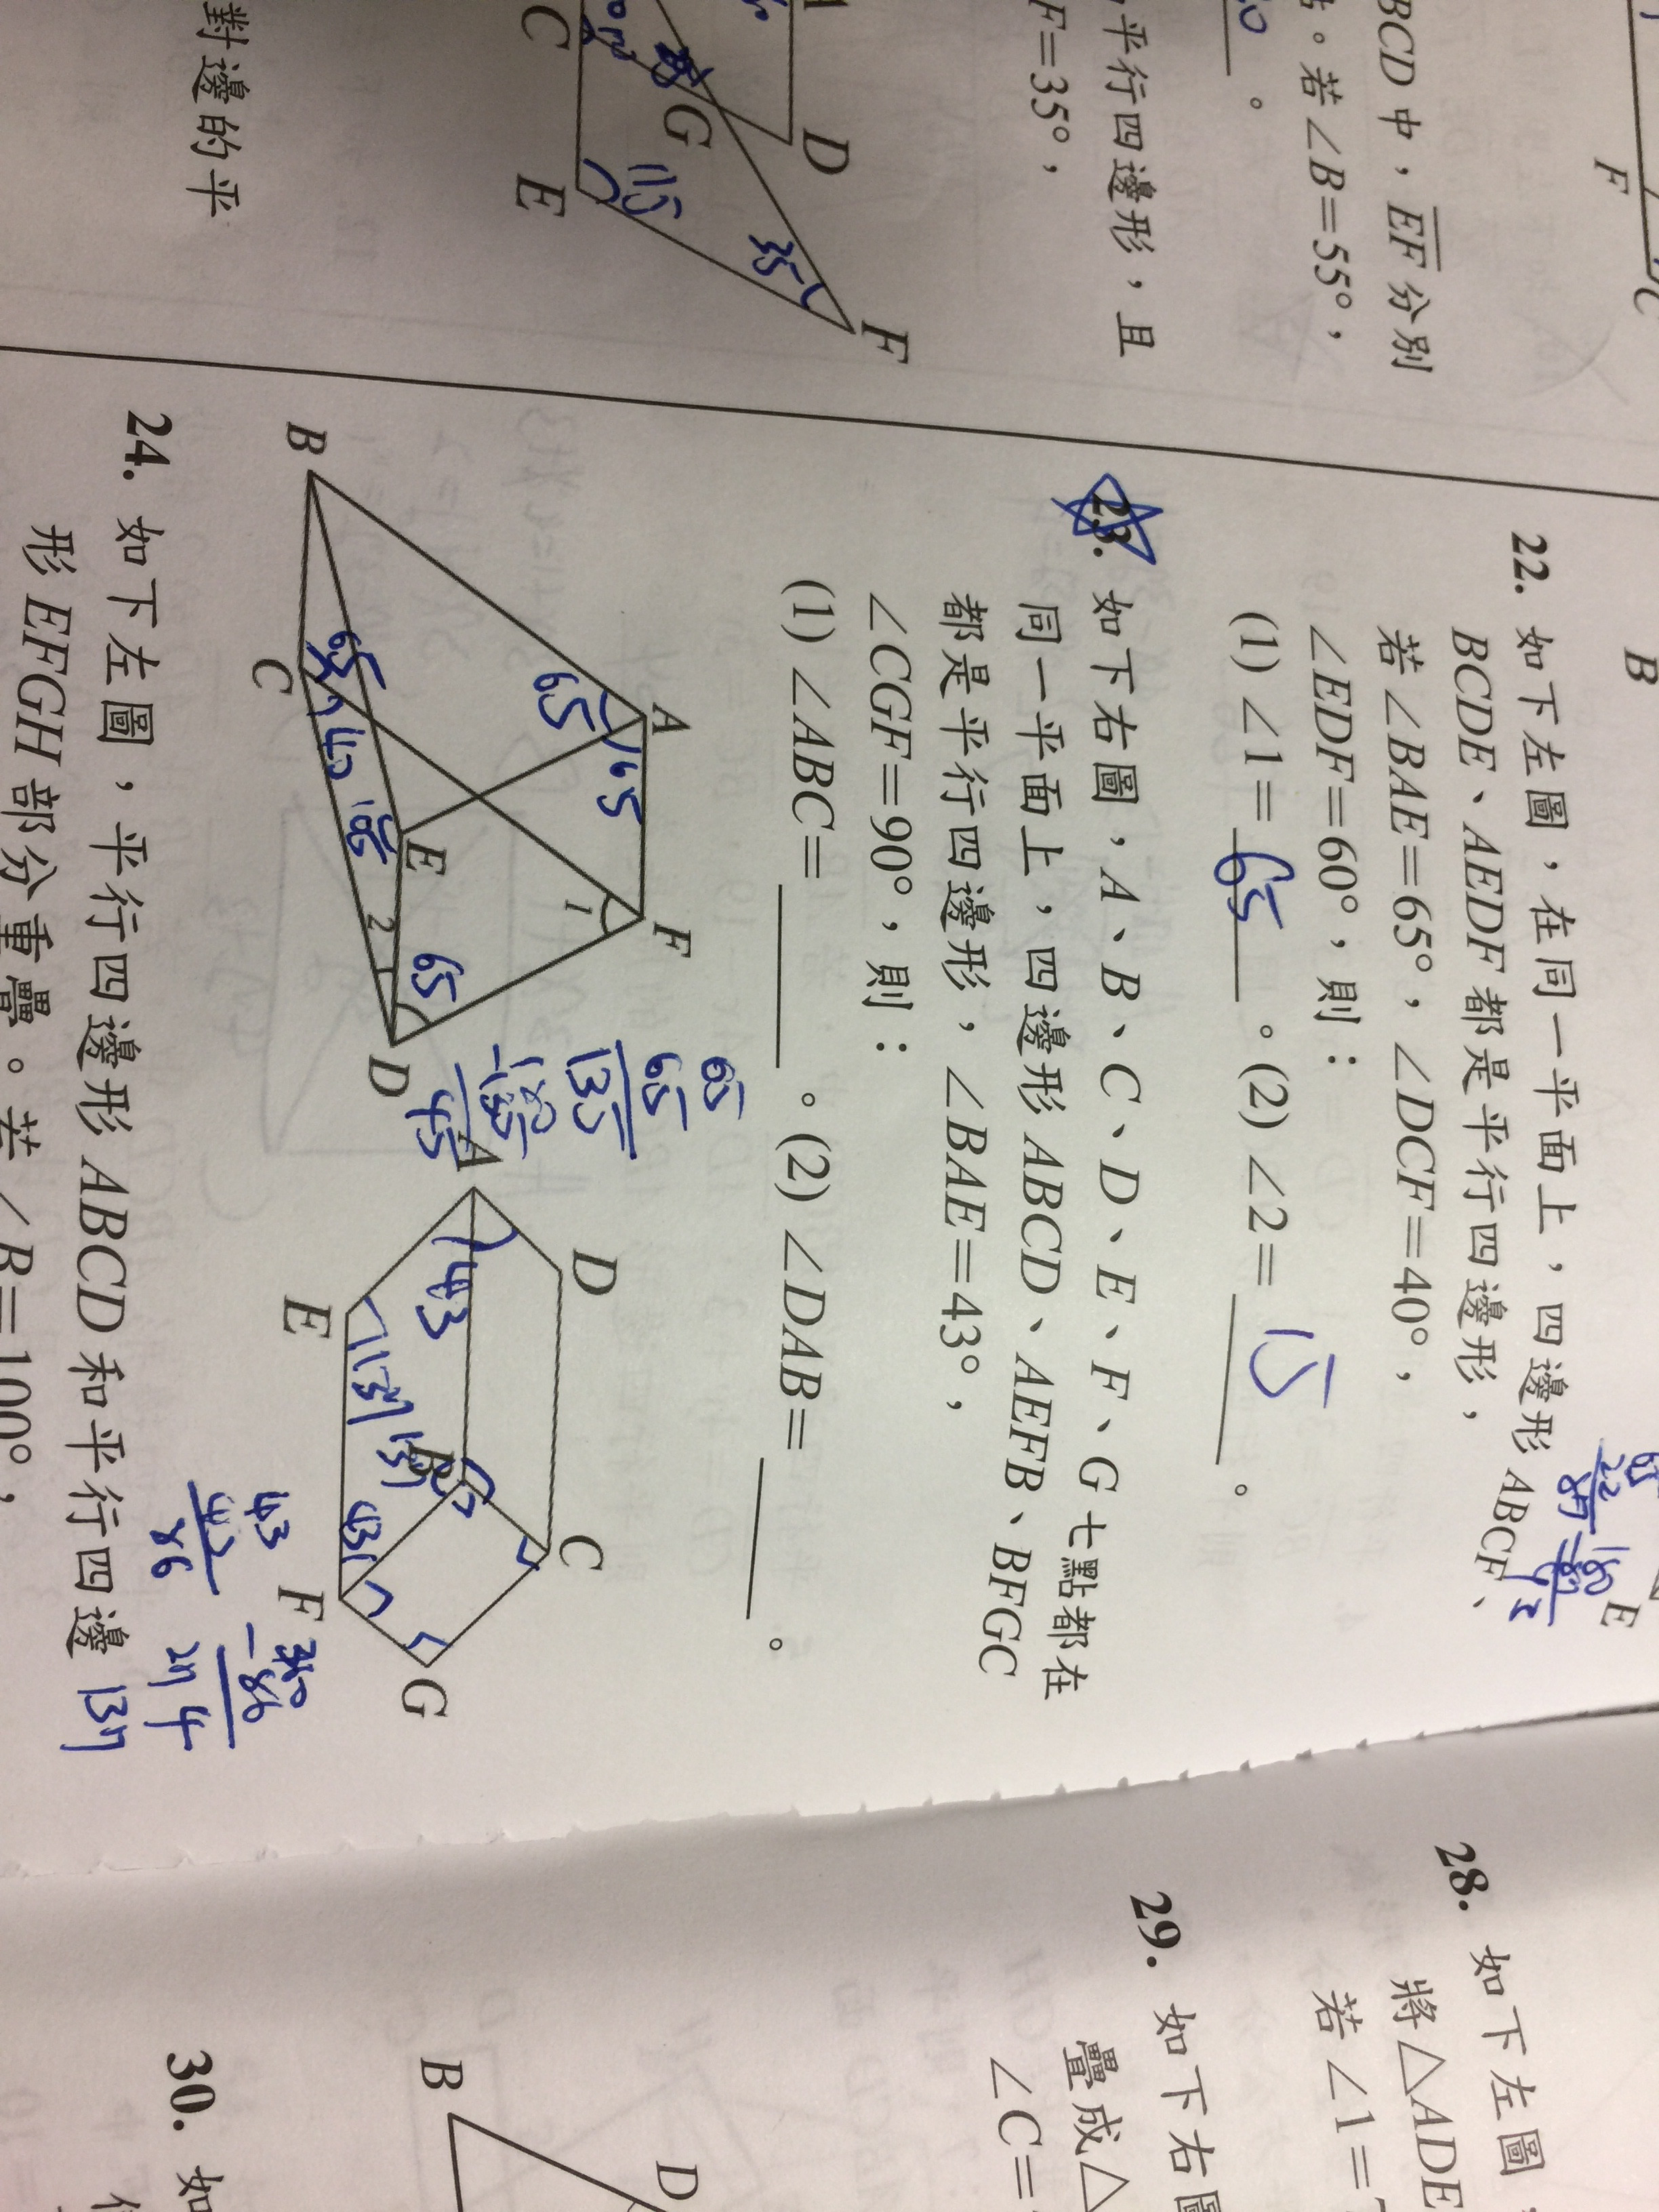 BCD 中，EF 分別
。若 ∠B=55°，
平行四邊形，且
F=35°，
A
D
G
C
E
F
115
35
對邊的平
F
C
B
E
22. 如下左圖，在同一平面上，四邊形 ABCF、
BCDE、AEDF 都是平行四邊形，
若 ∠BAE=65°，∠DCF=40°，
∠EDF=60°，則：
(1) ∠1=65。(2) ∠2=15。
23. 如下右圖，A、B、C、D、E、F、G 七點都在
同一平面上，四邊形 ABCD、AEFB、BFGC
都是平行四邊形，∠BAE=43°，
∠CGF=90°，則：
(1) ∠ABC=____。(2) ∠DAB=____。
A
65
65
F
1
B
65
C
40
E
2
65
D
65
65
135
180
-135
45
A
D
43
B
C
E
137
137
43
F
G
43
86
360
-86
274
137
24. 如下左圖，平行四邊形 ABCD 和平行四邊
形 EFGH 部分重疊。若 ∠B=100°，
28. 如下左圖，
將△ADE
若 ∠1=7
29. 如下右圖
疊成△
∠C=
B
D
30. 如